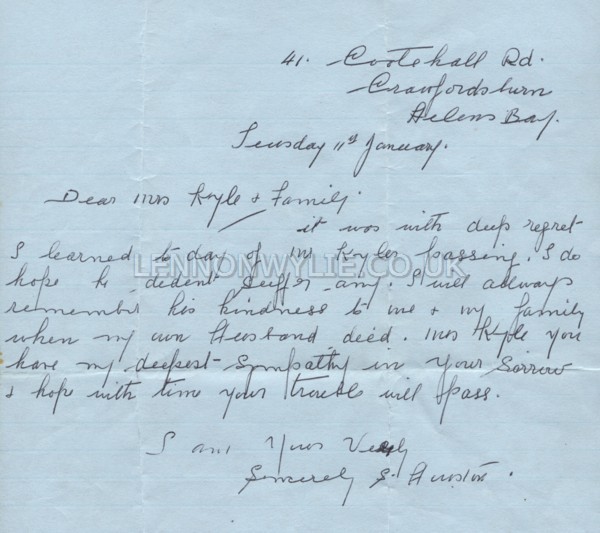 41. Cootehall Rd.
Crawfordsburn
Helens Bay.
Tuesday 11th January.
Dear Mrs Kyle & Family.
it was with deep regret
I learned to day of Mr Kyles passing. I do
hope he dident suffer any. I will allways
remember his kindness to me & my family
when my own Husband died. Mrs Kyle you
have my deepest sympathy in your Sorrow
& hope with time your trouble will pass.
I am Yours Very
Sincerely S. Huston.
LENNONWYLIE.CO.UK